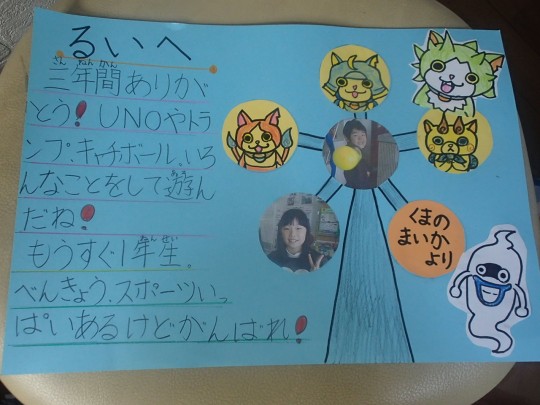 るいへ
さん ねん かん
三年間ありが
とう！UNOやトラ
ンプ、キャチボール、いろ
んなことをして遊ん
だね！
もうすぐ1年生。
べんきょう、スポーツいっ
ぱいあるけどがんばれ！
くまの
まいか
より